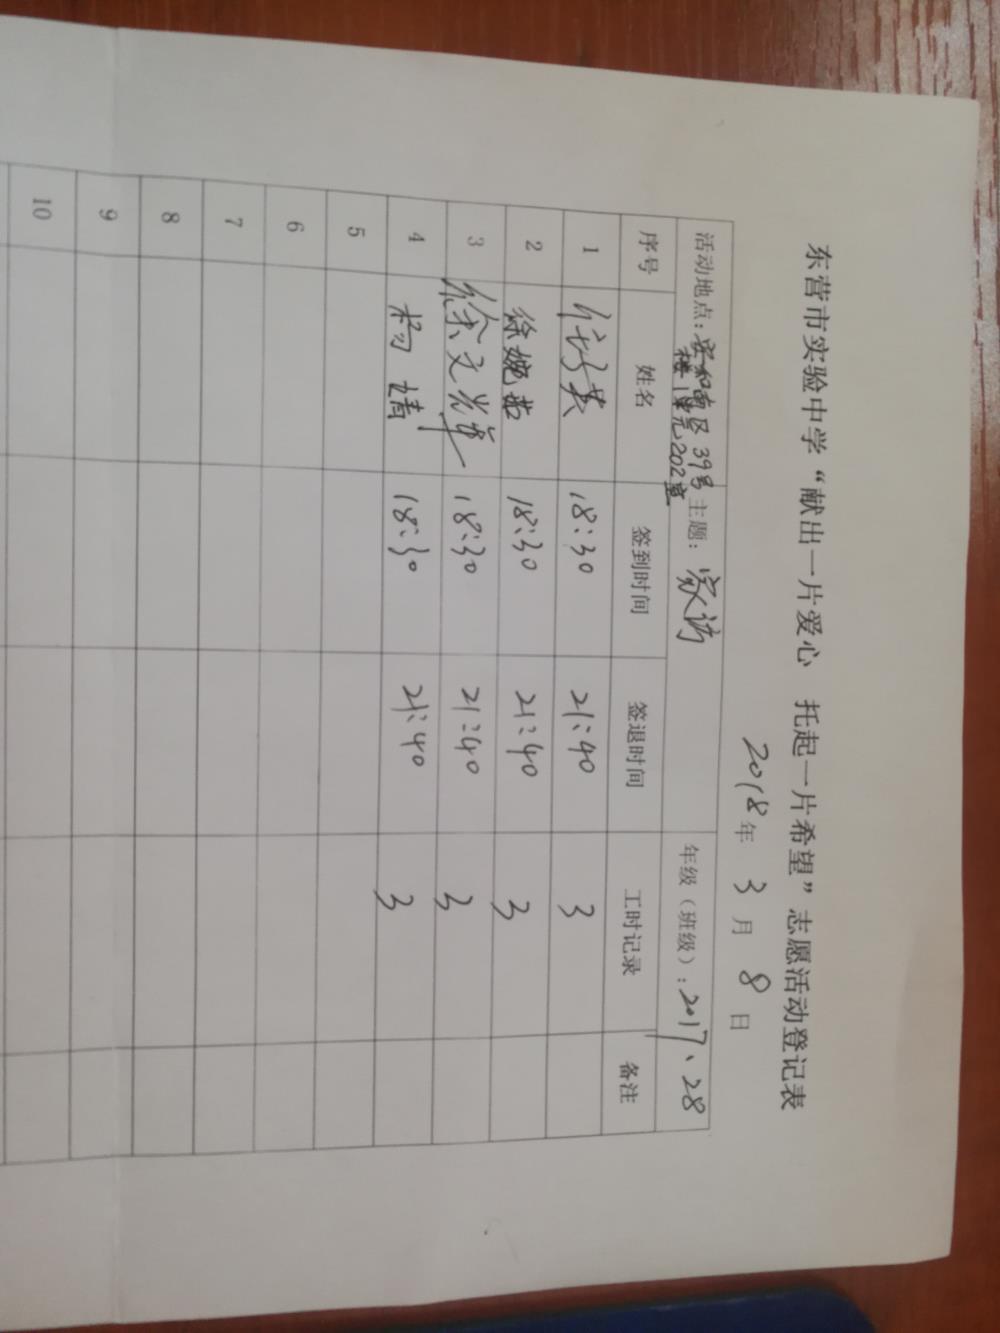 东营市实验中学“献出一片爱心 托起一片希望”志愿活动登记表
2018年 3月 8日
活动地点：安和南区39号楼1单元202室 主题：家访 年级（班级）：2017、28
序号 姓名 签到时间 签退时间 工时记录 备注
1 18:30 21:40 3
2 徐婉茹 18:30 21:40 3
3 徐文华 18:30 21:40 3
4 杨靖 18:30 21:40 3
5
6
7
8
9
10